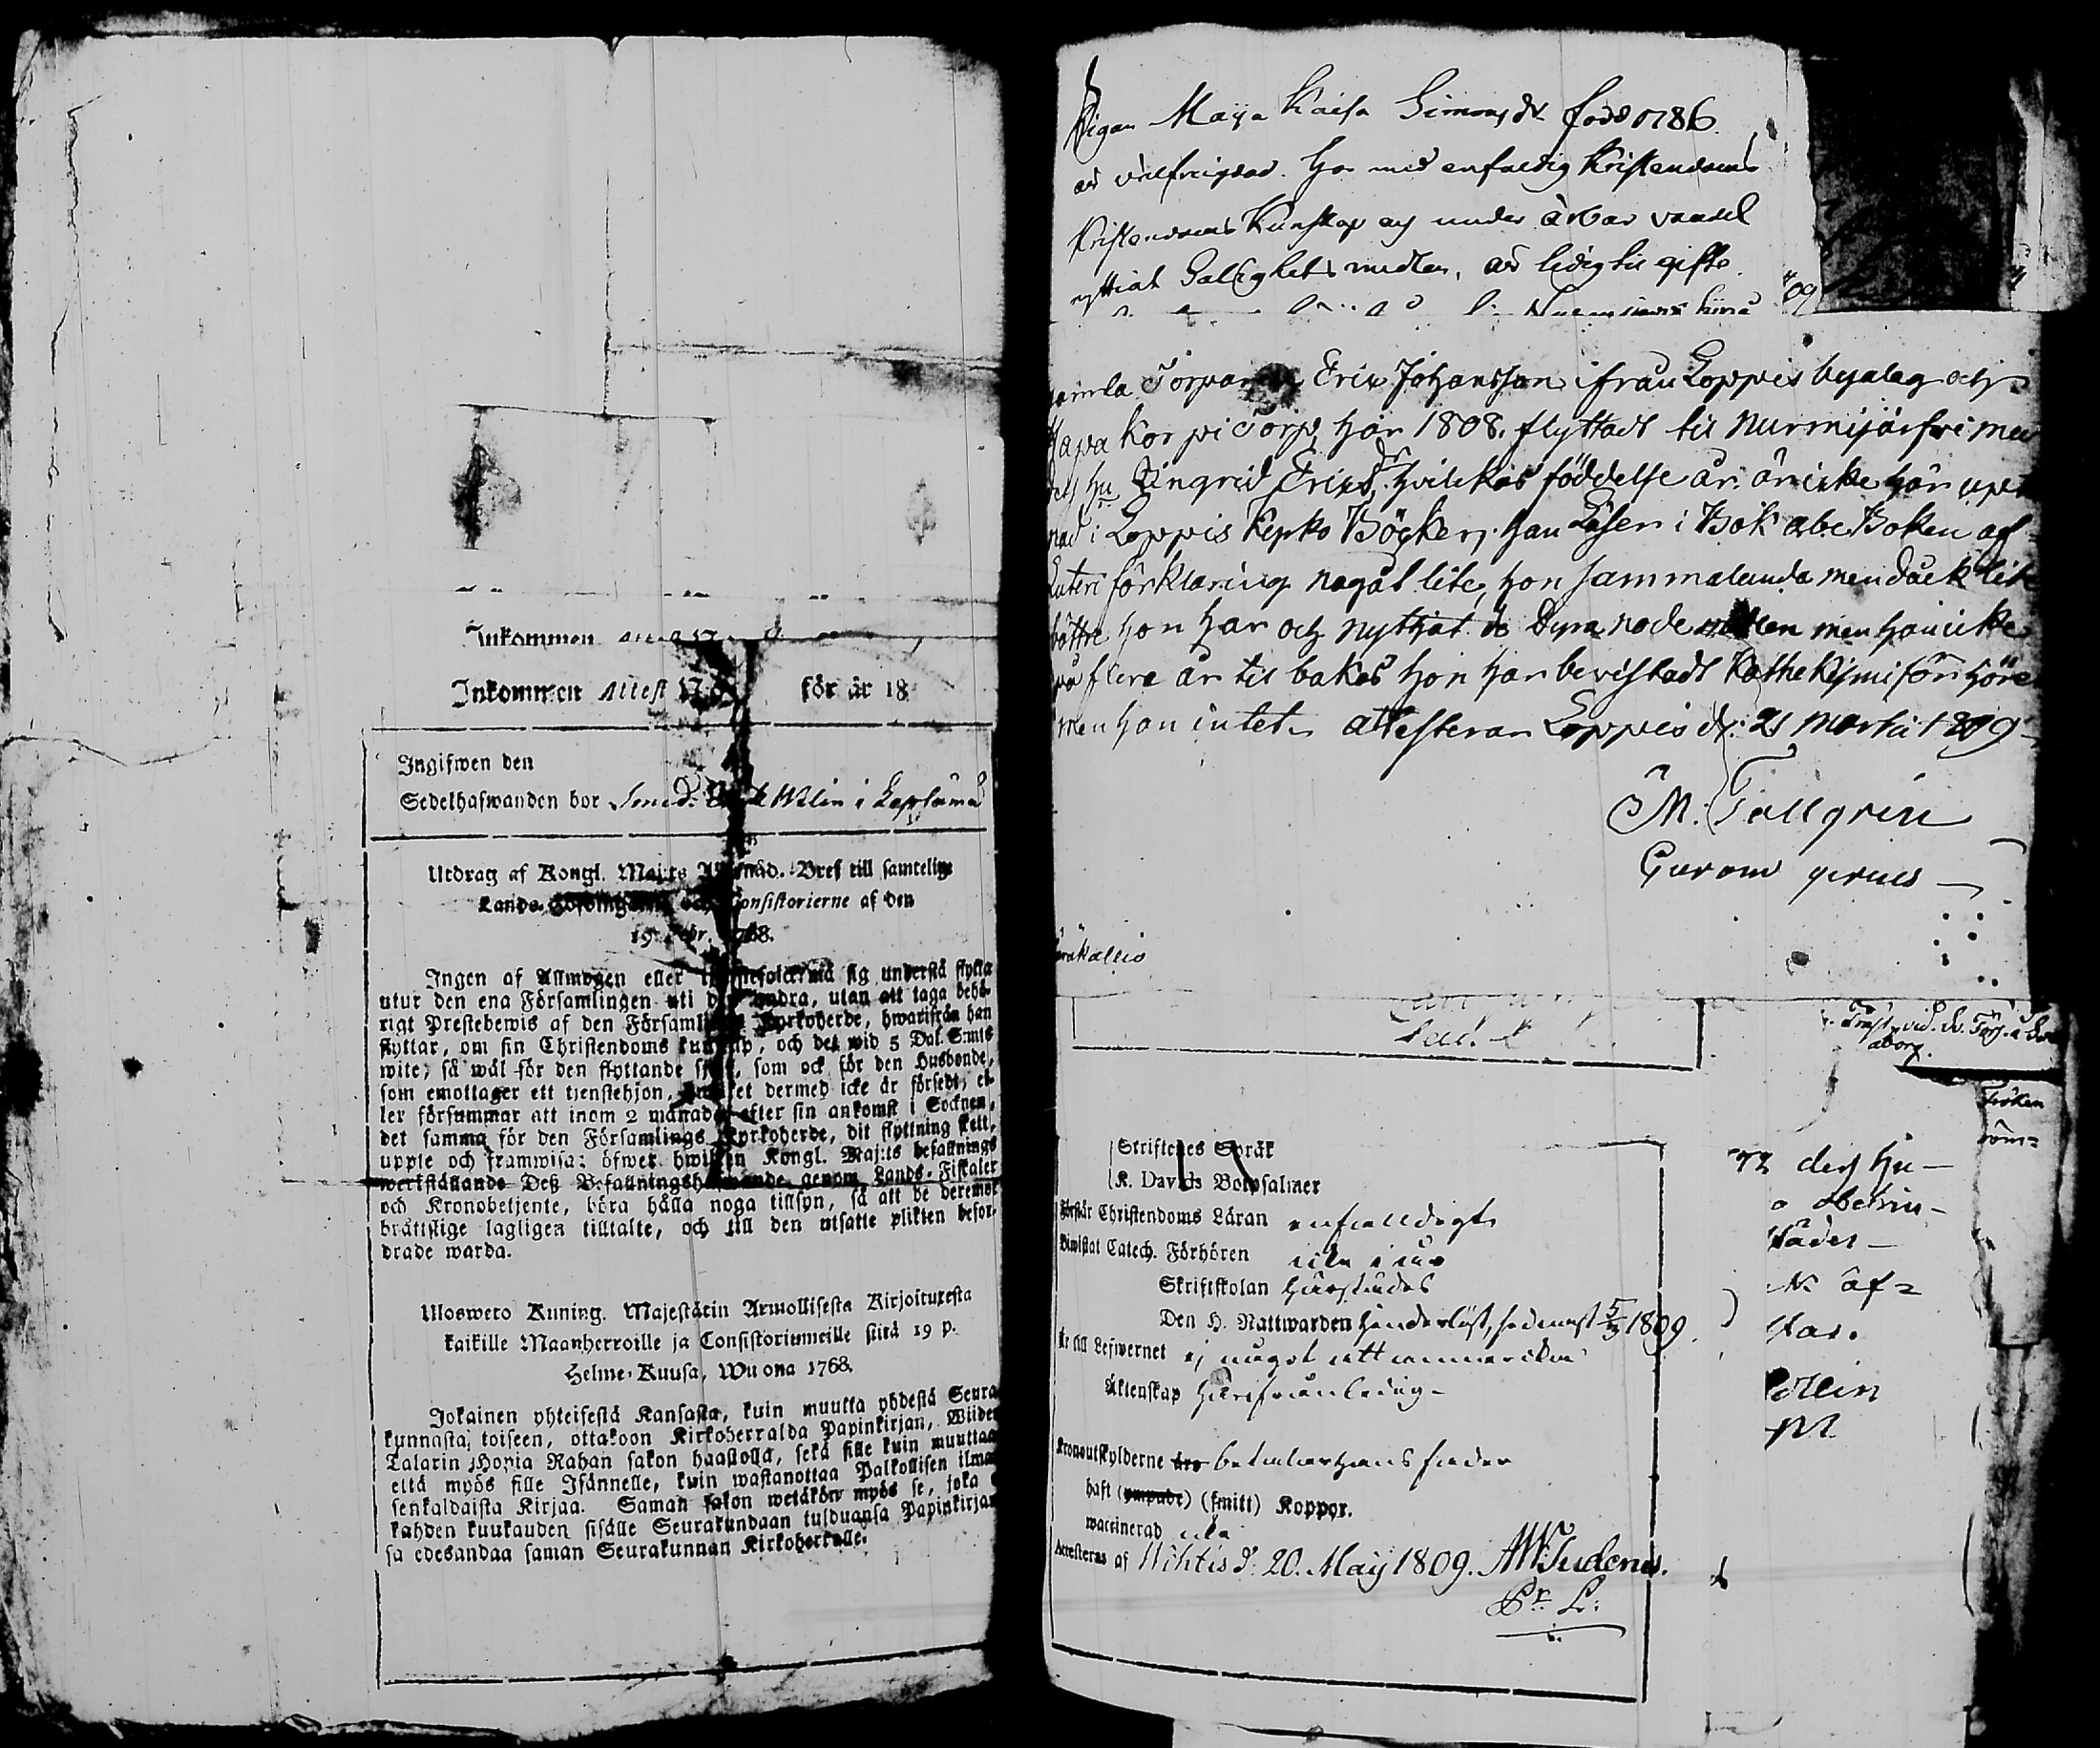 Inkommen
Inkommen attest 17 för år 18
Ingifwen den
Sedelhafwanden bor Smed: Wilin i Lepsämä
Utdrag af Kongl. Maj:ts Nåd. Bref till samtelige
Lands-Höfdingarne och Consistorierne af den
19 Febr. 1768.
Ingen af Allmogen eller tjenstefolcket må sig understå flytta
utur den ena Församlingen uti den andra, utan att taga behö-
rigt Prestebewis af den Församlings Kyrkoherde, hwarifrån han
flyttar, om sin Christendoms kunskap, och det wid 5 Dal. S:mts
wite; så wäl för den flyttande sjelf, som ock för den Husbonde,
som emottager ett tjenstehjon, hwilket dermed icke är försedt, el-
ler försummar att inom 2 månader efter sin ankomst i Socknen,
det samma för den Församlings Kyrkoherde, dit flyttning skett,
uppte och framwisa: öfwer hwilken Kongl. Maj:ts befallnings
werkställande Deß Befallningshafwande genom Lands-Fiskaler
och Kronobetjente, böra hålla noga tillsyn, så att de deremot
bråttslige lagligen tilltalte, och till den utsatte plikten befor-
drade warda.
Uloswero Kuning. Majestätin Armollisesta Kirjoituxesta
kaikille Maanherroille ja Consistoriumeille siitä 19 p.
Helme-Kuusa, Wuonna 1768.
Jokainen yhteisestä Kansasta, kuin muutta yhdestä Seura
kunnasta toiseen, ottakoon Kirkoherralda Papinkirjan, Wiiden
Talarin Hopia Rahan sakon haastolla, sekä sille kuin muuttaa
että myös sille Isännelle, kuin wastanottaa Palkollisen ilman
senkaldaista Kirjaa. Saman sakon wetäkön myös se, joka
kahden kuukauden sisälle Seurakundaan tulduansa Papinkirjan
sa edesandaa saman Seurakunnan Kirkoherralle.
Pigan Maija Kaisa Simonsdr född 1786.
är välfreigdad. har med enfaldig Kristendoms
Kristendoms Kunskap och under ärbar vandel
nyttiat Salighets medlen, är ledig til gifte.
09
gamla Torparen Eric Johansson ifrån Loppis byalag och
Hapa Korpi Torp, har 1808. flyttadt til Nurmijärfvi med
deß hu Lingrid Ericsdr hvilckas föddelse år är icke här upt
nad i Loppis Kyrko Böcker, han Läser i Bok abc Boken af
Luteri förklaring nagåt lite, hon sammalunda men däck lite
bättre hon har och nythjat de Dyra node medlen men han icke
på flere år til bakas hon har bevistadt Kathekismi förhöre
men han intet attesterar Loppis d: 21 Martii 1809
M: Tallgrén
Curam gerens
Skriftenes Språk
K. Davids Botpsalmer
Förstår Christendoms Läran enfalldigt
Biwistat Catech. Förhören icke i år
Skriftskolan härstädes
Den H. Nattwarden händerlöst, sednast 5/3 1809.
Är till Lefwernet ej något att anmärka
Äktenskap härifrån ledig
Kronoutskylderne äro betalar hans fader
haft (ympade) (smitt) Koppor.
waccinerad icke
Attesteras af Wihtis d. 20. Maij 1809. AWTudenus.
Pr. L:
deß hu